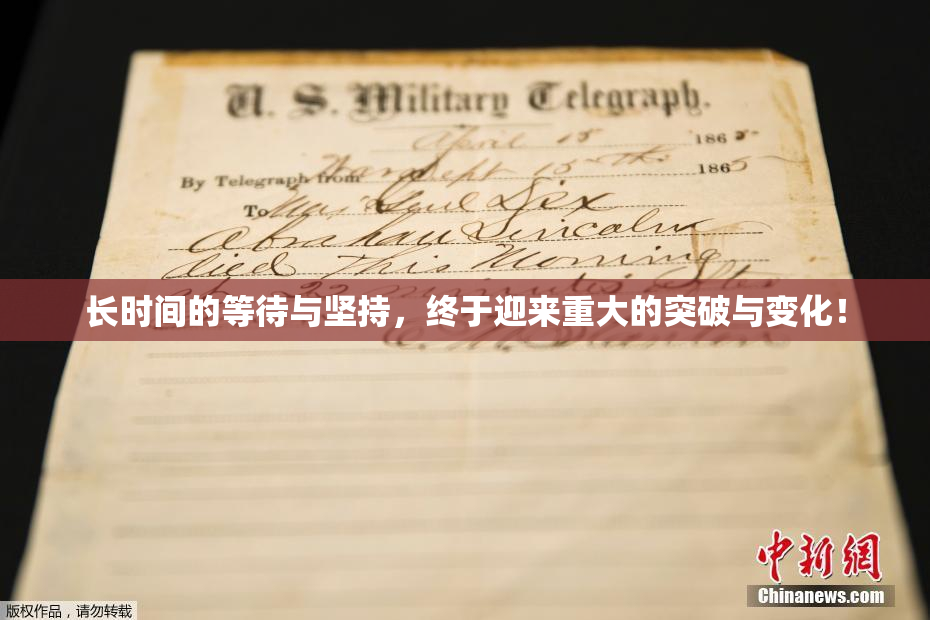 U. S. Military Telegraph.
April 15 1865
By Telegraph from War Dept 15th 1865
To Maj Genl Dix
Abraham Lincoln
died This Morning
at 22 minutes after
长时间的等待与坚持，终于迎来重大的突破与变化！
E. M. Stanton
中新网
Chinanews.com
版权作品，请勿转载